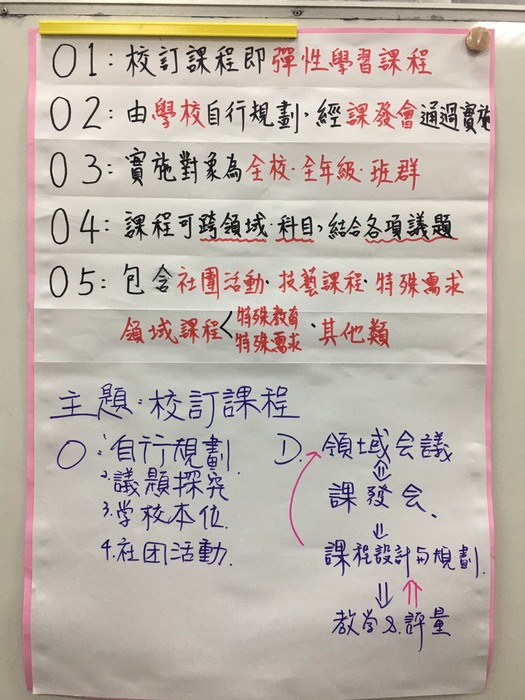 01:校訂課程即彈性學習課程
02:由學校自行規劃,經課發會通過實施
03:實施對象為全校·全年級·班群
04:課程可跨領域·科目,結合各項議題
05:包含社團活動·技藝課程·特殊需求
領域課程<特殊教育 特殊需求·其他類
主題:校訂課程
O:1.自行規劃
2.議題探究
3.学校本位.
4.社团活動.
D.領域会議
⇕
課發会.
⇓
課程設計与規劃.
⇓⇑
教学&評量